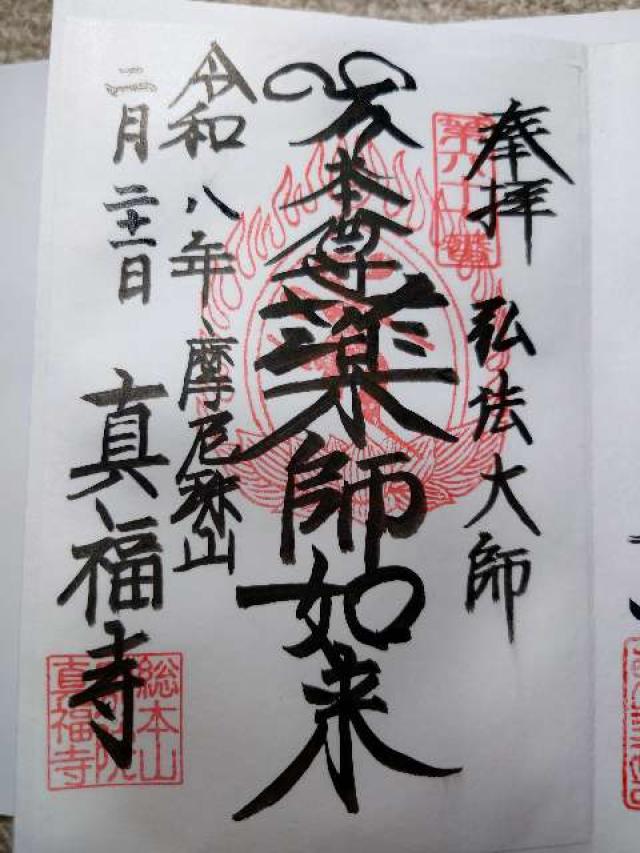 奉拝 弘法大師
第六十一番
本尊薬師如来
令和八年 摩尼珠山
二月二十二日 真福寺
総本山
院
真福寺